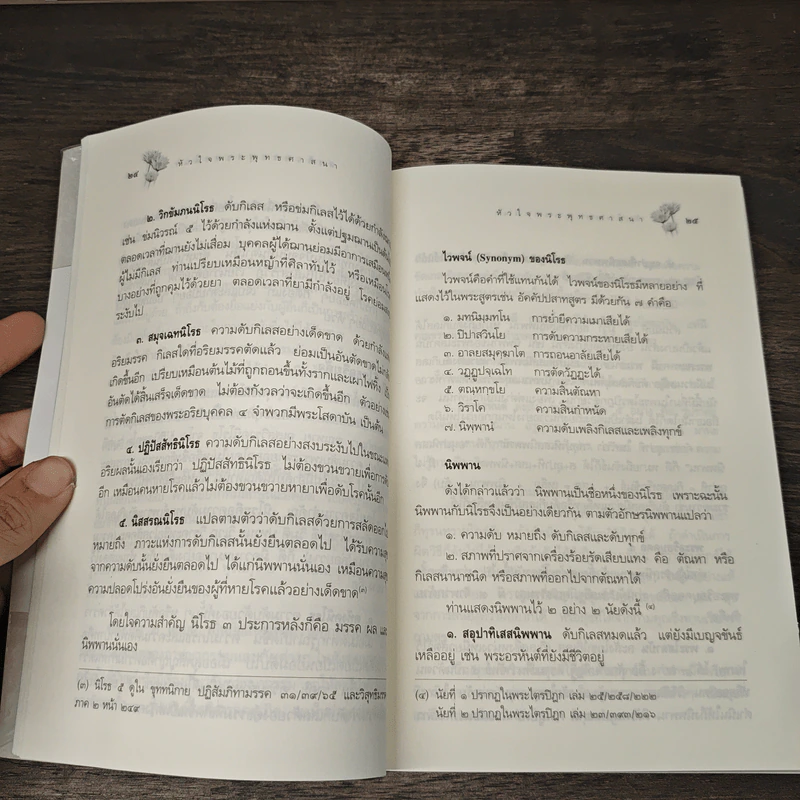 ๒๔ หัวใจพระพุทธศาสนา
๒. วิกขัมภนนิโรธ ดับกิเลส หรือข่มกิเลสไว้ได้ด้วยกำลัง
เช่น ข่มนิวรณ์ ๕ ไว้ด้วยกำลังแห่งฌาน ตั้งแต่ปฐมฌานเป็นต้น
ตลอดเวลาที่ฌานยังไม่เสื่อม บุคคลผู้ได้ฌานย่อมมีอาการเสมือน
ผู้ไม่มีกิเลส ท่านเปรียบเหมือนหญ้าที่ศิลาทับไว้ หรือเหมือน
บางอย่างที่ถูกคุมไว้ด้วยยา ตลอดเวลาที่ยามีกำลังอยู่ โรคย่อม
ระงับไป
๓. สมุจเฉทนิโรธ ความดับกิเลสอย่างเด็ดขาด ด้วยกำลัง
อริยมรรค กิเลสใดที่อริยมรรคตัดแล้ว ย่อมเป็นอันตัดขาดไม่
เกิดขึ้นอีก เปรียบเหมือนต้นไม้ที่ถูกถอนขึ้นทั้งรากและเผาไฟทิ้ง เป็น
อันตัดได้สิ้นเสร็จเด็ดขาด ไม่ต้องกังวลว่าจะเกิดขึ้นอีก ตัวอย่าง
การตัดกิเลสของพระอริยบุคคล ๔ จำพวกมีพระโสดาบัน เป็นต้น
๔. ปฏิปัสสัทธินิโรธ ความดับกิเลสอย่างสงบระงับไปในขณะแห่ง
อริยผลนั้นเองเรียกว่า ปฏิปัสสัทธินิโรธ ไม่ต้องขวนขวายเพื่อการดับ
อีก เหมือนคนหายโรคแล้วไม่ต้องขวนขวายหายาเพื่อดับโรคนั้นอีก
๕. นิสสรณนิโรธ แปลตามตัวว่าดับกิเลสด้วยการสลัดออก
หมายถึง ภาวะแห่งการดับกิเลสนั้นยั่งยืนตลอดไป ได้รับความสุข
จากความดับนั้นยั่งยืนตลอดไป ได้แก่นิพพานนั่นเอง เหมือนความสุข
ความปลอดโปร่งอันยั่งยืนของผู้ที่หายโรคแล้วอย่างเด็ดขาด(๓)
โดยใจความสำคัญ นิโรธ ๓ ประการหลังก็คือ มรรค ผล และ
นิพพานนั่นเอง
(๓) นิโรธ ๕ ดูใน ขุททนิกาย ปฏิสัมภิทามรรค ๓๑/๓๙/๖๕ และวิสุทธิมรรค
ภาค ๒ หน้า ๒๔๙
หัวใจพระพุทธศาสนา ๒๕
ไวพจน์ (Synonym) ของนิโรธ
ไวพจน์คือคำที่ใช้แทนกันได้ ไวพจน์ของนิโรธมีหลายอย่าง ที่
แสดงไว้ในพระสูตรเช่น อัคคัปปสาทสูตร มีด้วยกัน ๗ คำคือ
๑. มทนิมฺมทโน การย่ำยีความเมาเสียได้
๒. ปิปาสวินโย การดับความกระหายเสียได้
๓. อาลยสมุคฺฆาโต การถอนอาลัยเสียได้
๔. วฏฺฏูปจฺเฉโท การตัดวัฏฏะได้
๕. ตณฺหกฺขโย ความสิ้นตัณหา
๖. วิราโค ความสิ้นกำหนัด
๗. นิพฺพานํ ความดับเพลิงกิเลสและเพลิงทุกข์
นิพพาน
ดังได้กล่าวแล้วว่า นิพพานเป็นชื่อหนึ่งของนิโรธ เพราะฉะนั้น
นิพพานกับนิโรธจึงเป็นอย่างเดียวกัน ตามตัวอักษรนิพพานแปลว่า
๑. ความดับ หมายถึง ดับกิเลสและดับทุกข์
๒. สภาพที่ปราศจากเครื่องร้อยรัดเสียบแทง คือ ตัณหา หรือ
กิเลสนานาชนิด หรือสภาพที่ออกไปจากตัณหาได้
ท่านแสดงนิพพานไว้ ๒ อย่าง ๒ นัยดังนี้ (๔)
๑. สอุปาทิเสสนิพพาน ดับกิเลสหมดแล้ว แต่ยังมีเบญจขันธ์
เหลืออยู่ เช่น พระอรหันต์ที่ยังมีชีวิตอยู่
(๔) นัยที่ ๑ ปรากฏในพระไตรปิฎก เล่ม ๒๕/๒๕๘/๒๒๒
นัยที่ ๒ ปรากฏในพระไตรปิฎก เล่ม ๒๓/๓๙๓/๒๑๖